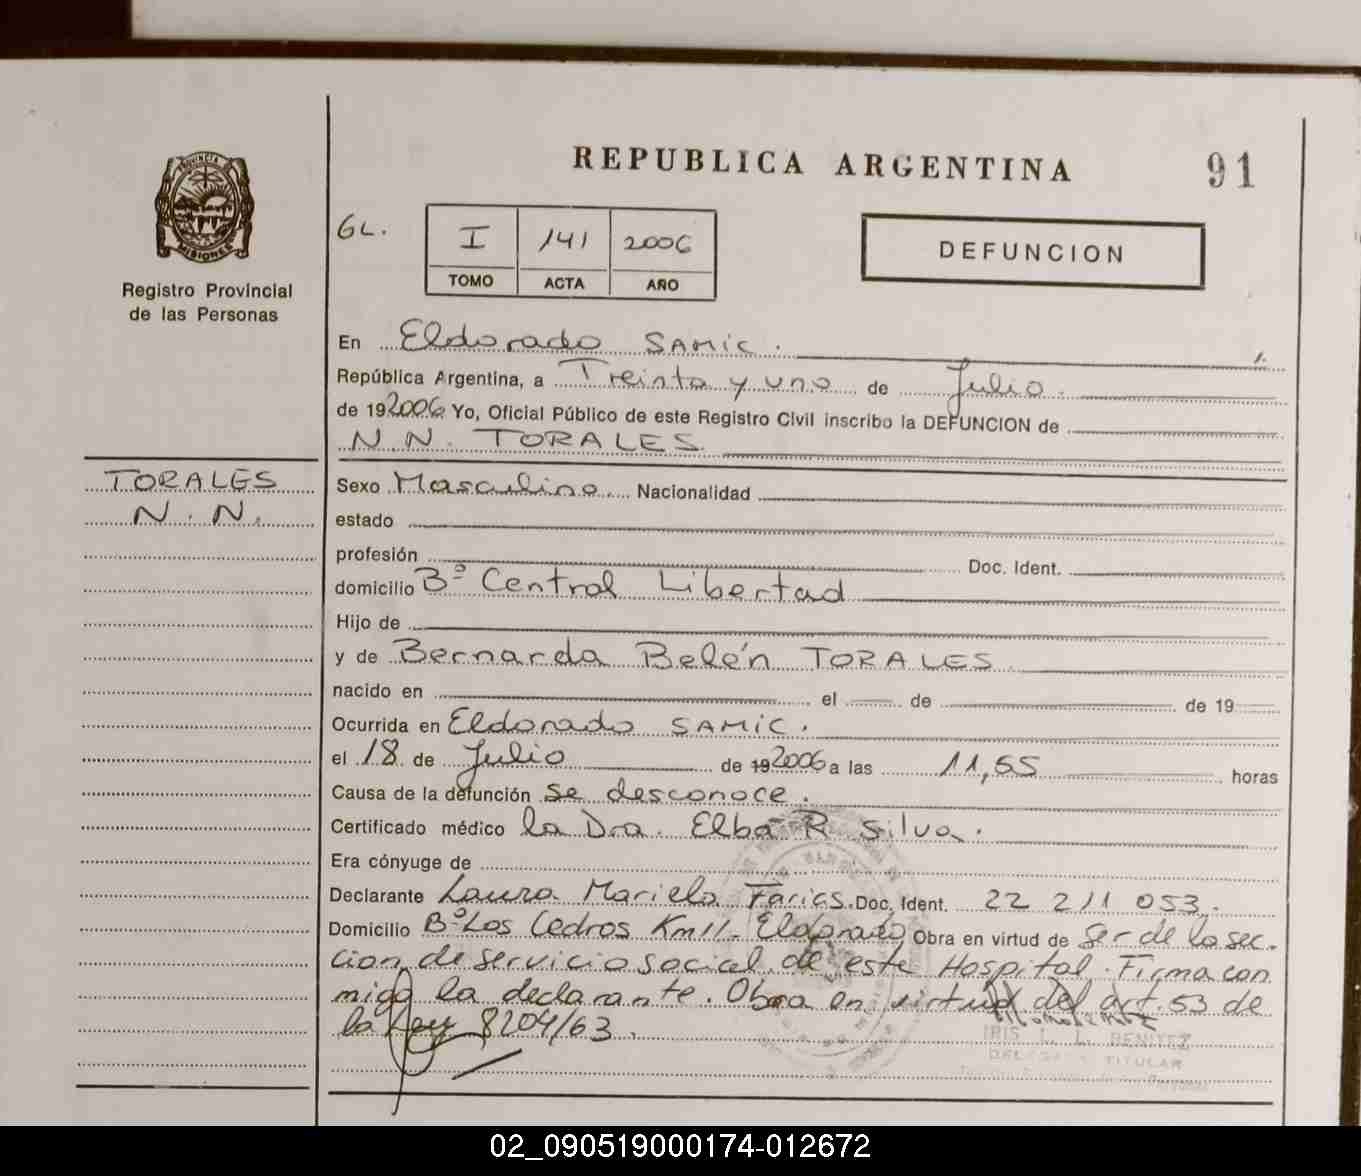 REPUBLICA ARGENTINA
91
PROVINCIA
MISIONES
Registro Provincial
de las Personas
GL.
I 141 2006
TOMO ACTA AÑO
DEFUNCION
En Eldorado SAMIC.
República Argentina, a Treinta y uno de Julio.
de 192006 Yo, Oficial Público de este Registro Civil inscribo la DEFUNCION de
N.N. TORALES.
TORALES
N. N.
Sexo Masculino Nacionalidad
estado
profesión Doc. Ident.
domicilio Bº Central Libertad
Hijo de
y de Bernarda Belén TORALES
nacido en el de de 19
Ocurrida en Eldorado SAMIC.
el 18 de Julio de 192006 a las 11,55 horas
Causa de la defunción se desconoce.
Certificado médico la Dra. Elba R Silva.
Era cónyuge de
Declarante Laura Mariela Farias. Doc. Ident. 22 211 053.
Domicilio Bº Los Cedros Km11. Eldorado Obra en virtud de Ser de la sec-
cion de servicio social de este Hospital. Firma con
migo la declarante. Obra en virtud del art. 53 de
la Ley 8204/63.
IRIS L. L. BENITEZ
DELEGADA TITULAR
02_090519000174-012672